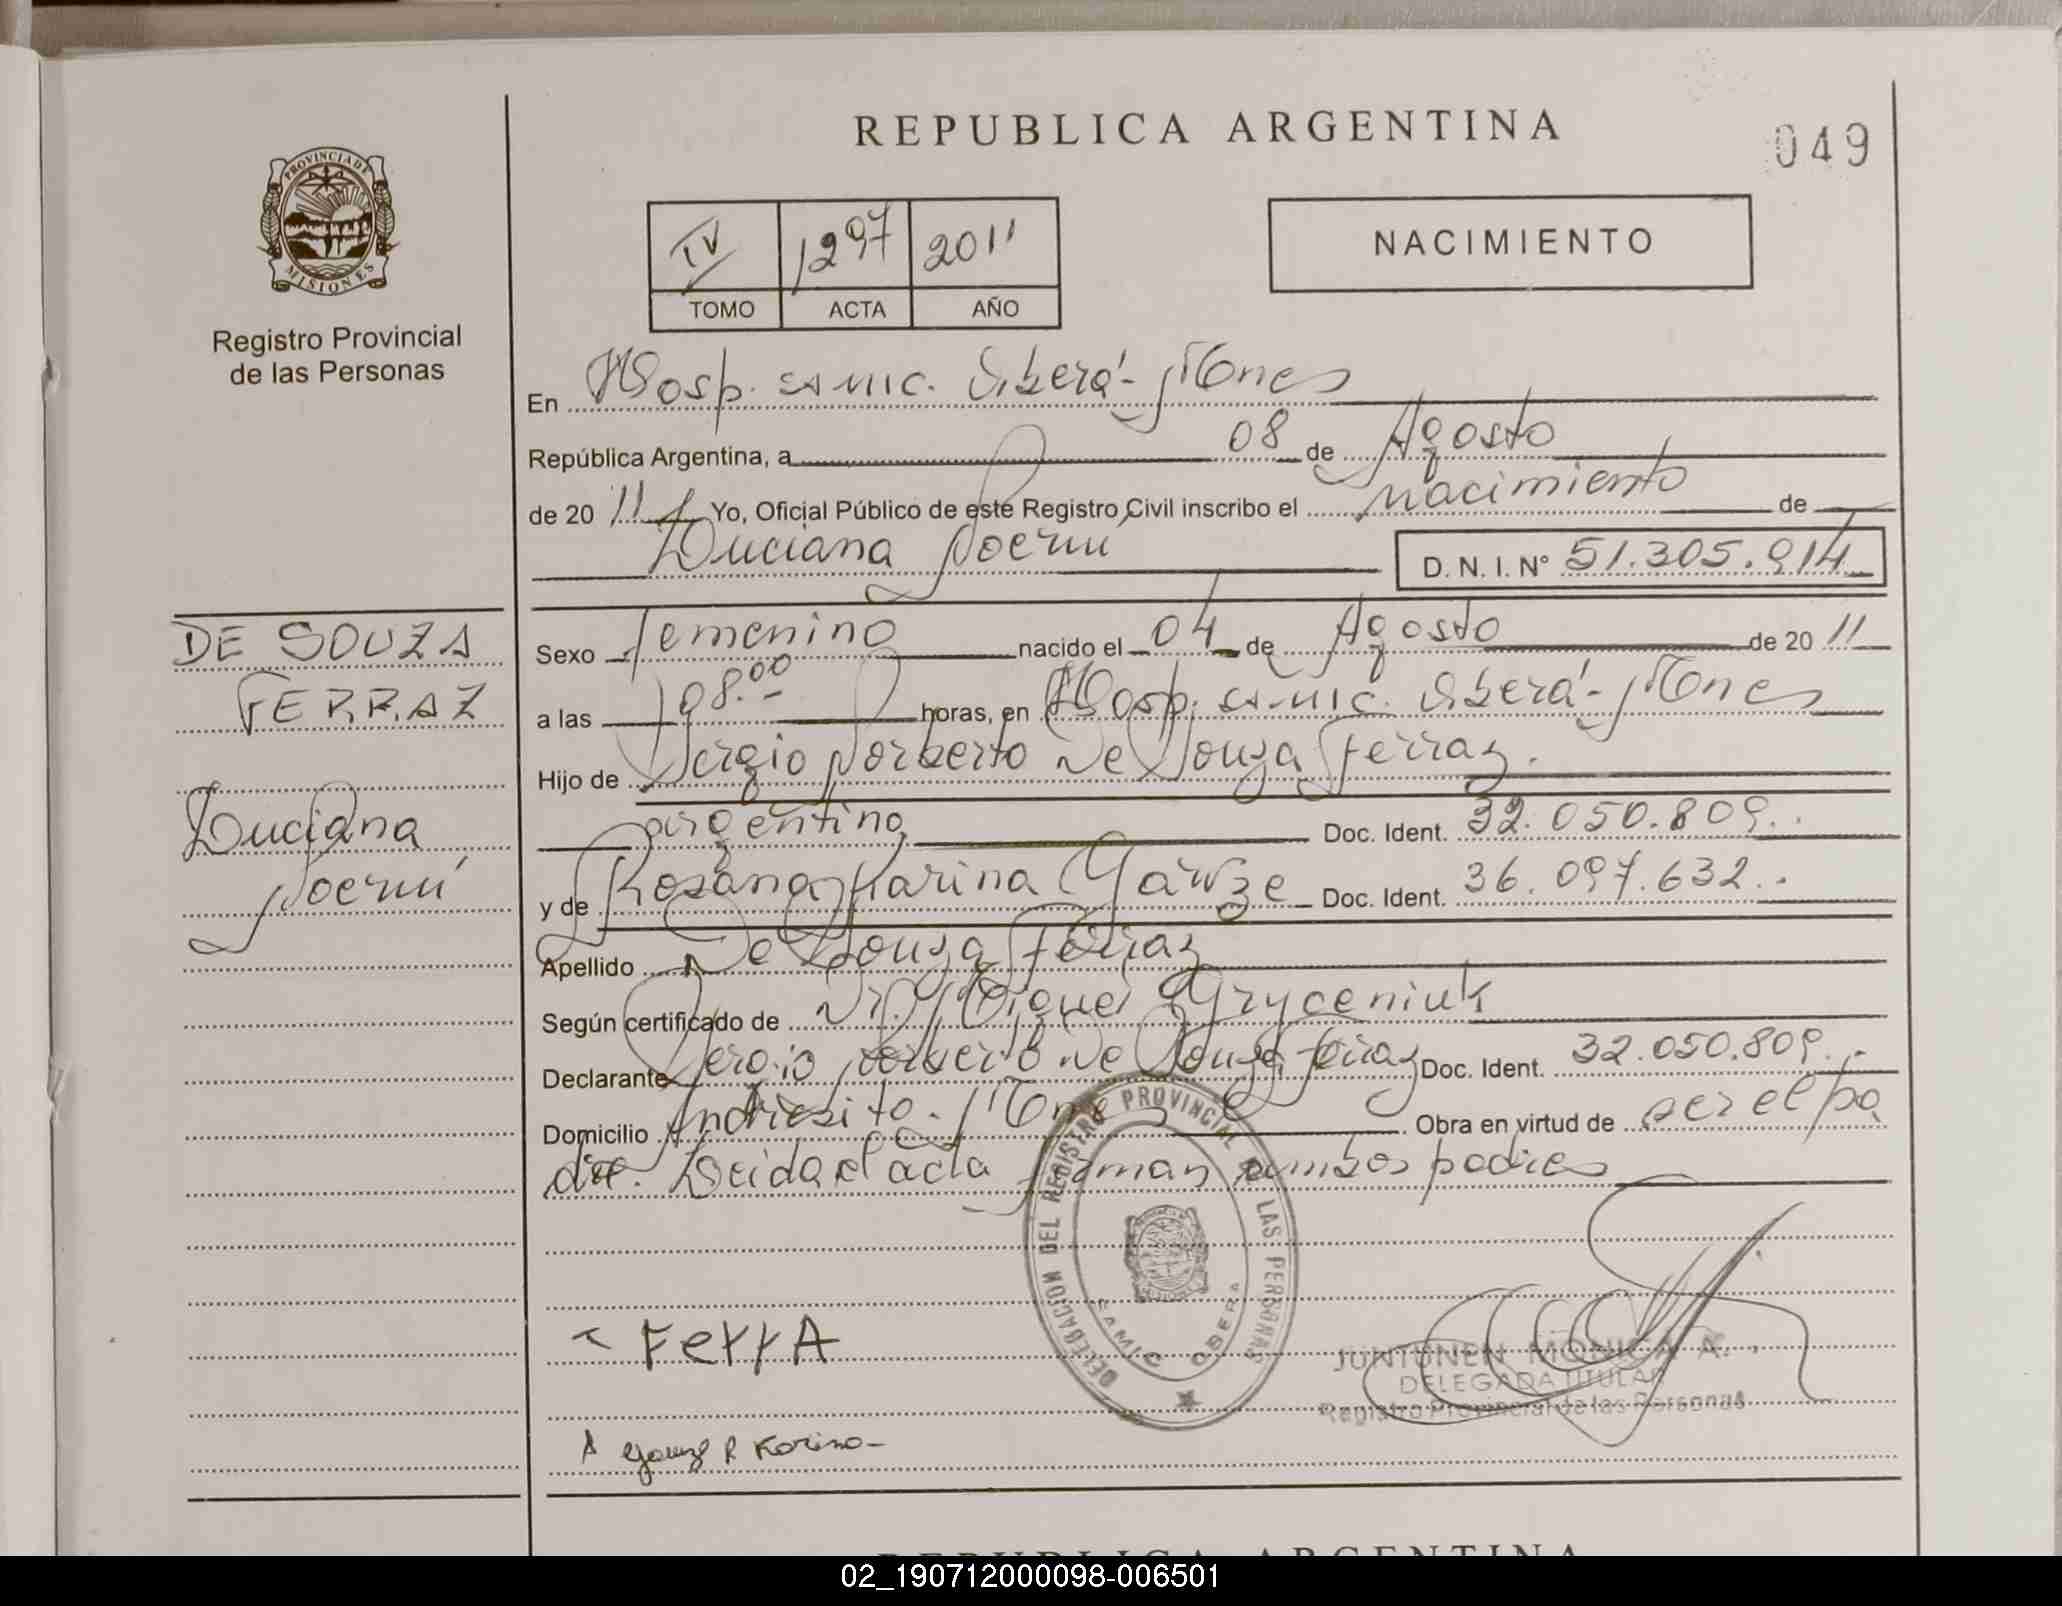 REPUBLICA ARGENTINA
049
PROVINCIA DE MISIONES
Registro Provincial
de las Personas
IV 1297 2011
TOMO ACTA AÑO
NACIMIENTO
En Hosp. samic. Oberá - Mnes
República Argentina, a 08 de Agosto
de 20 11 Yo, Oficial Público de este Registro Civil inscribo el nacimiento de
Luciana Noemí
D. N. I. N° 51.305.914
DE SOUZA
FERRAZ
Luciana
Noemí
Sexo femenino nacido el 04 de Agosto de 20 11
a las 08.00 horas, en Hosp. samic. Oberá - Mnes
Hijo de Sergio Norberto De Souza Ferraz.
argentino Doc. Ident. 32.050.809..
y de Rosana Karina Yawze Doc. Ident. 36.097.632..
Apellido De Souza Ferraz
Según certificado de Dr. Miguel Hryceniuk
Declarante Sergio Norberto De Souza Ferraz Doc. Ident. 32.050.809..
Domicilio Andresito - Mnes Obra en virtud de ser el pa
dre. Leida el acta firman ambos padres
DELEGACION DEL REGISTRO PROVINCIAL DE LAS PERSONAS
SAMIC OBERA
FerrA
JUNTUNEN MONICA A.
DELEGADA TITULAR
Registro Provincial de las Personas
R Karina
REPUBLICA ARGENTINA
02_190712000098-006501